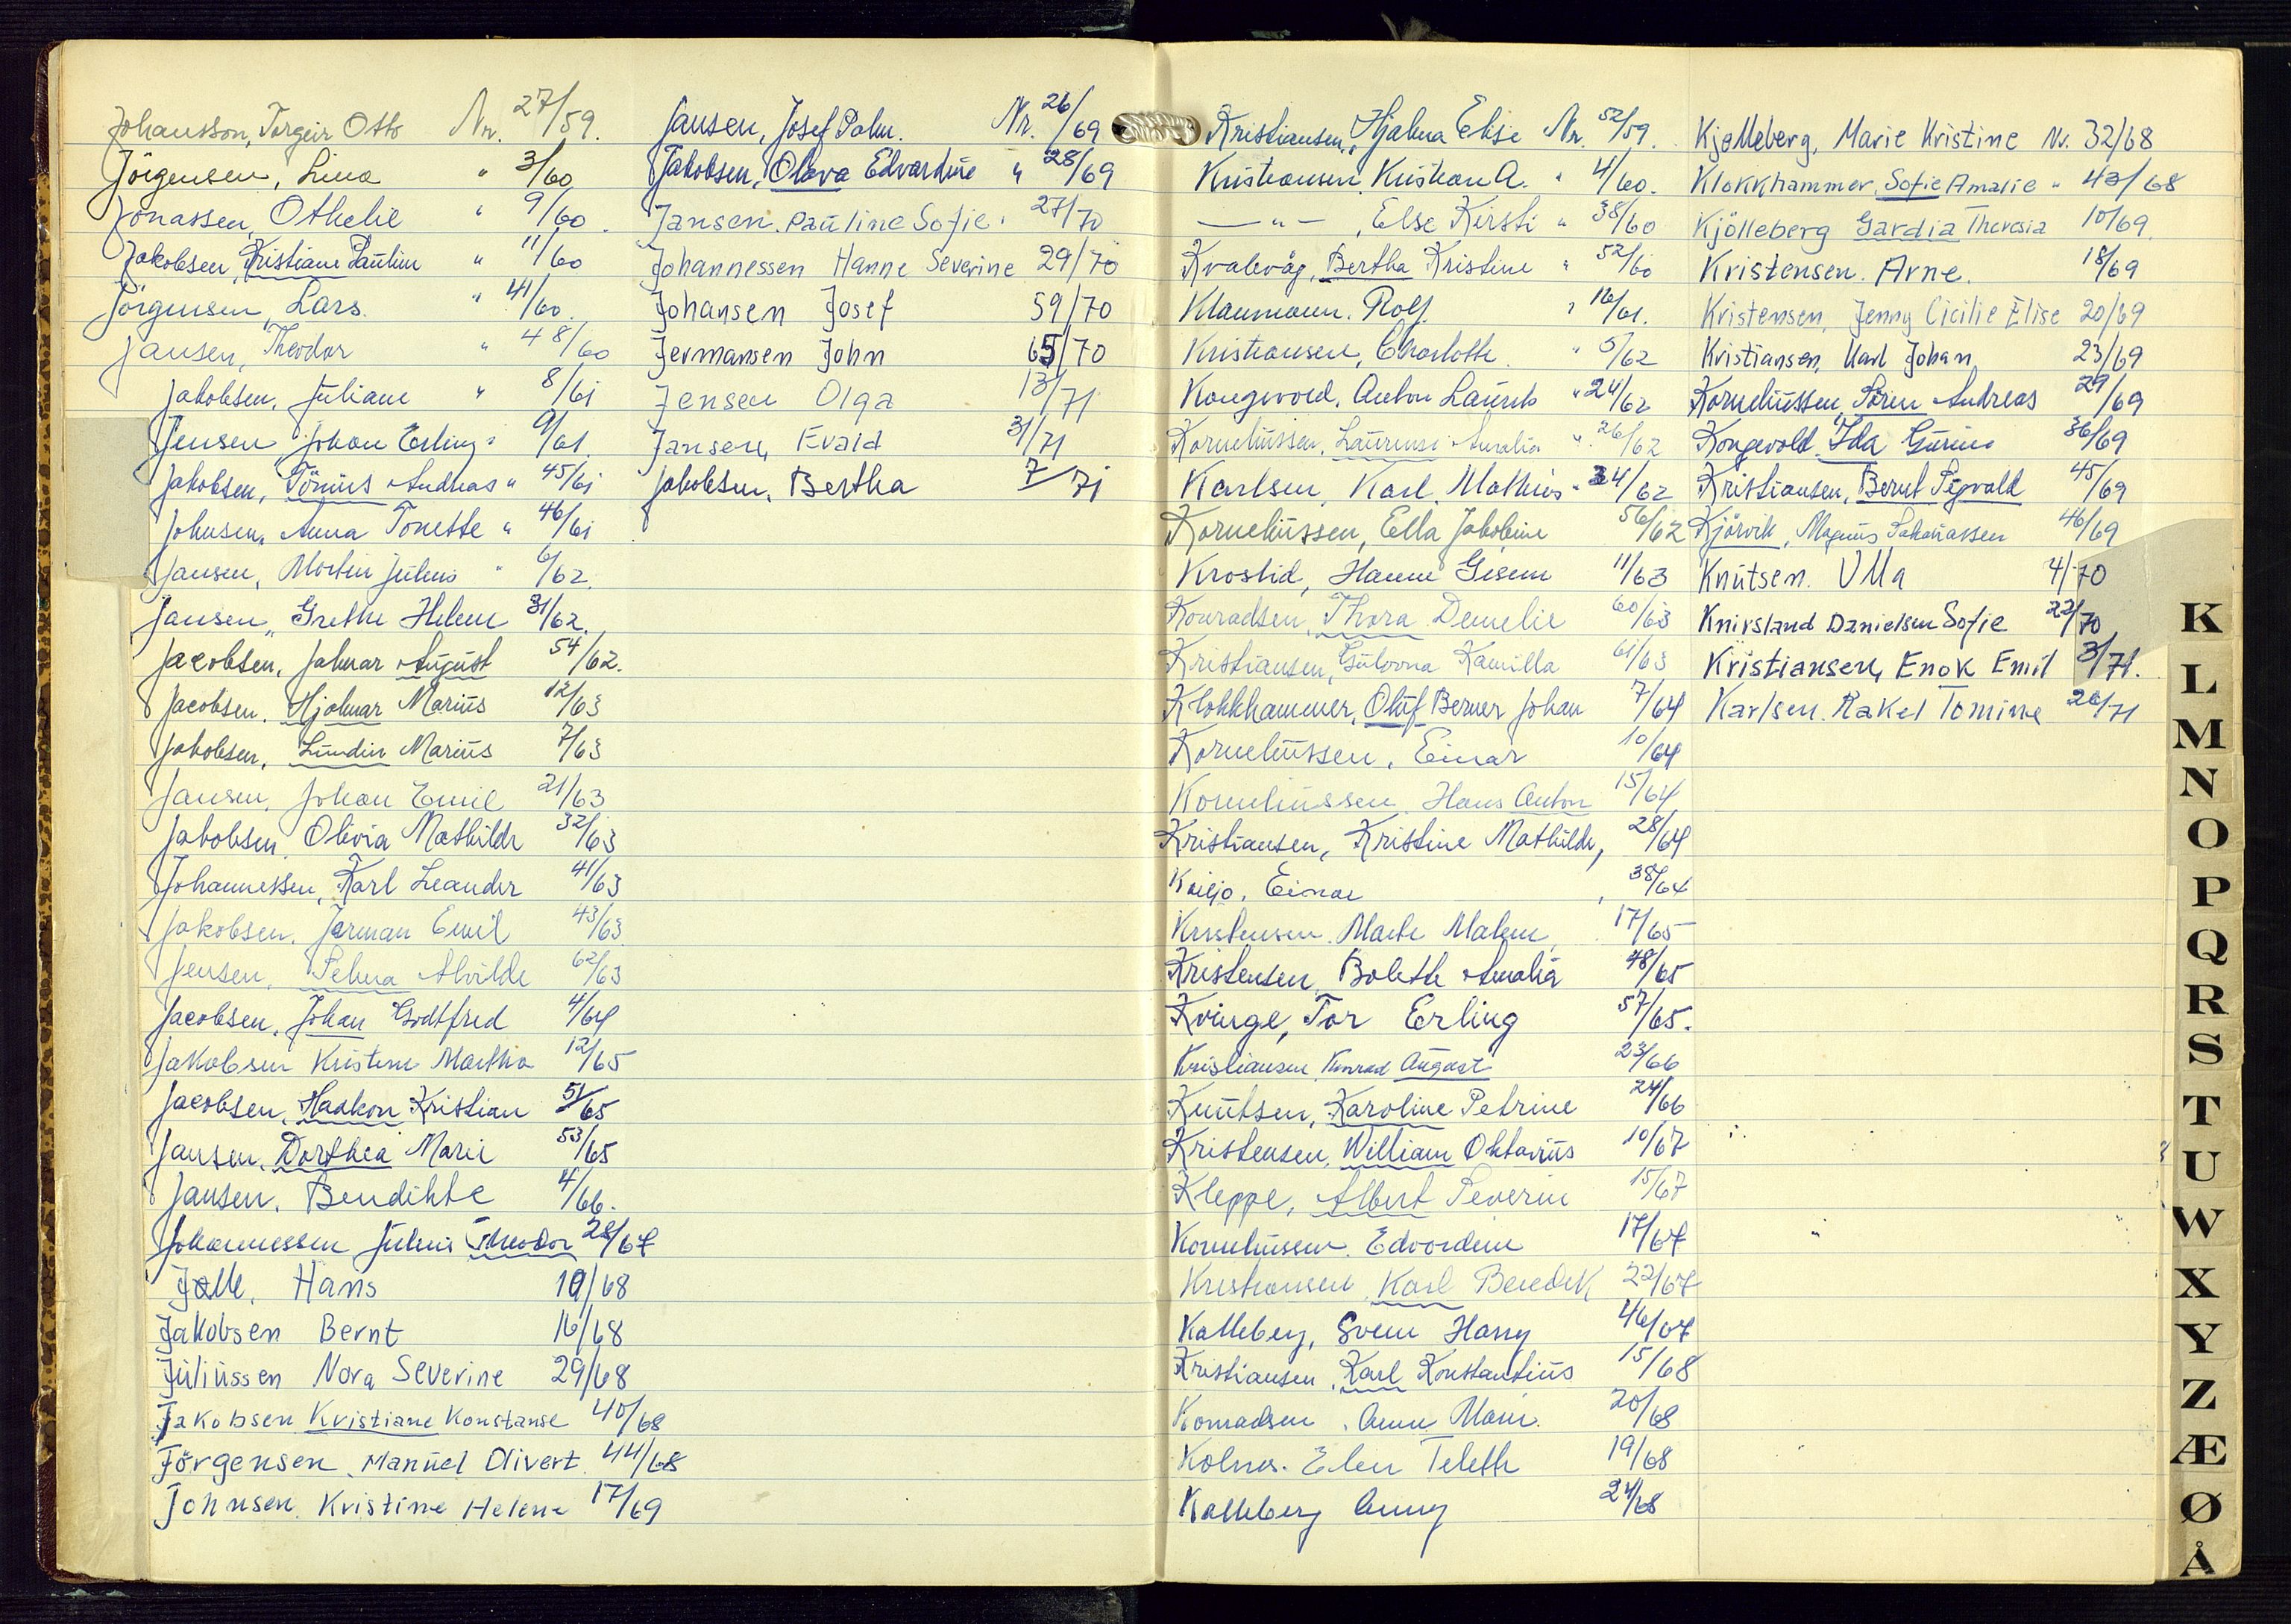 Johansson, Torgeir Otto Nr. 27/59.
Jörgensen, Lina " 3/60
Jonassen, Othelie " 9/60.
Jakobsen, Kristiane Pauline " 11/60
Jörgensen, Lars. " 41/60.
Jansen, Theodor " 48/60
Jakobsen, Juliane " 8/61
Jensen, Johan Erling " 9/61.
Jakobsen, Tönnis Andreas " 45/61
Johnsen, Anna Tonette " 46/61
Jansen, Martin Julius " 6/62.
Jansen, Grethe Helene 31/62.
Jacobsen, Jalmar August 54/62.
Jacobsen, Hjalmar Marius 12/63
Jakobsen, Lundin Marius 7/63
Jansen, Johan Emil 21/63
Jakobsen, Olivia Mathilde 32/63
Johannessen, Karl Leander 41/63
Jakobsen, Jerman Emil 43/63
Jensen, Selma Alvilde 62/63
Jacobsen, Johan Godtfred 4/64
Jakobsen Kristine Martha 12/65
Jacobsen, Haakon Kristian 51/65
Jansen, Dorthea Marie 53/65
Jansen, Bendikte 4/66.
Johannessen Julius Theodor 28/67
Jølle, Hans 10/68
Jakobsen Bernt 16/68
Juliussen Nora Severine 29/68
Jakobsen Kristiane Konstanse 40/68
Jörgensen, Manuel Olivert 44/68
Johnsen Kristine Helene 17/69
Jansen, Josef Palm. Nr. 26/69
Jakobsen, Olava Edvardine " 28/69
Jansen. Pauline Sofie " 27/70
Johannessen Hanne Severine 29/70
Johansen Josef 59/70
Jermansen John 65/70
Jensen Olga 13/71
Jansen, Evald 31/71
Jakobsen, Bertha 7/71
Kristiansen, Hjalma Elise Nr. 52/59.
Kristiansen, Kristian A. " 4/60.
— " — , Else Kirsti " 38/60
Kvalevåg, Bertha Kristine " 52/60
Klaumann. Rolf. " 16/61.
Kristiansen, Charlotte. " 5/62
Kongevold, Anton Laurits " 24/62
Korneliussen, Laurense Amalia " 26/62
Karlsen, Karl Mathias " 34/62
Korneliussen, Ella Jakobine 56/62
Krostid, Hanne Gesine 11/63
Konradsen, Thora Demelie 60/63
Kristiansen, Gulovna Kamilla 61/63
Klokkhammer, Oluf Berner Johan 7/64
Korneliussen, Einar 10/64
Korneliussen, Hans Anton 15/64
Kristiansen, Kristine Mathilde, 28/64
Einar , 38/64
Kristensen. Marte Malene, 17/65
Kristensen, Bolette Amalia 48/65
Kvinge, Tor Erling 57/65.
Kristiansen, Konrad August 23/66
Knutsen, Karoline Petrine 24/66
Kristensen, William Oktavius 10/67
Kleppe, Albert Severin 15/67
Korneliussen. Edvardine 17/67
Kristiansen, Karl Benedik 22/67
Kalleberg, Svein Harry 46/67
Kristiansen, Karl Konstantius 15/68
Konradsen, Anne Marie. 20/68
Kolnes. Elen Telette 19/68
Kalleberg Anny 24/68
Kjølleberg, Marie Kristine Nr. 32/68
Klokkhammer, Sofie Amalie " 43/68
Kjölleberg Gardia Theresia 10/69.
Kristensen. Arne. 18/69
Kristensen, Jenny Cicilie Elise 20/69
Kristiansen, Karl Johan 23/69
Korneliussen, Sören Andreas 29/69
Kongevold, Ida Gurine 36/69
Kristiansen, Bernt Sigvald 45/69
Kjörvik, Magnus Sakariassen 46/69
Knutsen. Ulla 4/70
Knivsland Danielsen Sofie 22/70
Kristiansen, Enok Emil 3/71.
Karlsen. Rakel Tomine 26/71
K
L
M
N
O
P
Q
R
S
T
U
W
X
Y
Z
Æ
Ø
Å